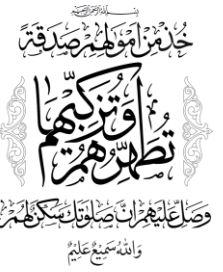 بسم الله الرحمن الرحيم
خُذْ مِنْ أَمْوَٰلِهِمْ صَدَقَةً
تُطَهِّرُهُمْ وَتُزَكِّيهِم بِهَا
وَصَلِّ عَلَيْهِمْ إِنَّ صَلَوٰتَكَ سَكَنٌ لَّهُمْ
وَاللَّهُ سَمِيعٌ عَلِيمٌ